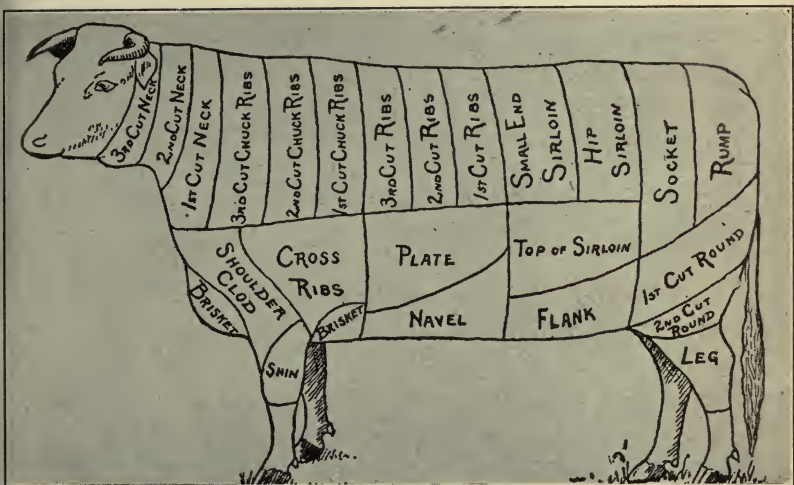 3RD CUT NECK
2ND CUT NECK
1ST CUT NECK
3RD CUT CHUCK RIBS
2ND CUT CHUCK RIBS
1ST CUT CHUCK RIBS
3RD CUT RIBS
2ND CUT RIBS
1ST CUT RIBS
SMALL END
SIRLOIN
HIP
SIRLOIN
SOCKET
RUMP
SHOULDER
CLOD
CROSS
RIBS
PLATE
TOP OF SIRLOIN
1ST CUT ROUND
BRISKET
BRISKET
NAVEL
FLANK
2ND CUT
ROUND
SHIN
LEG